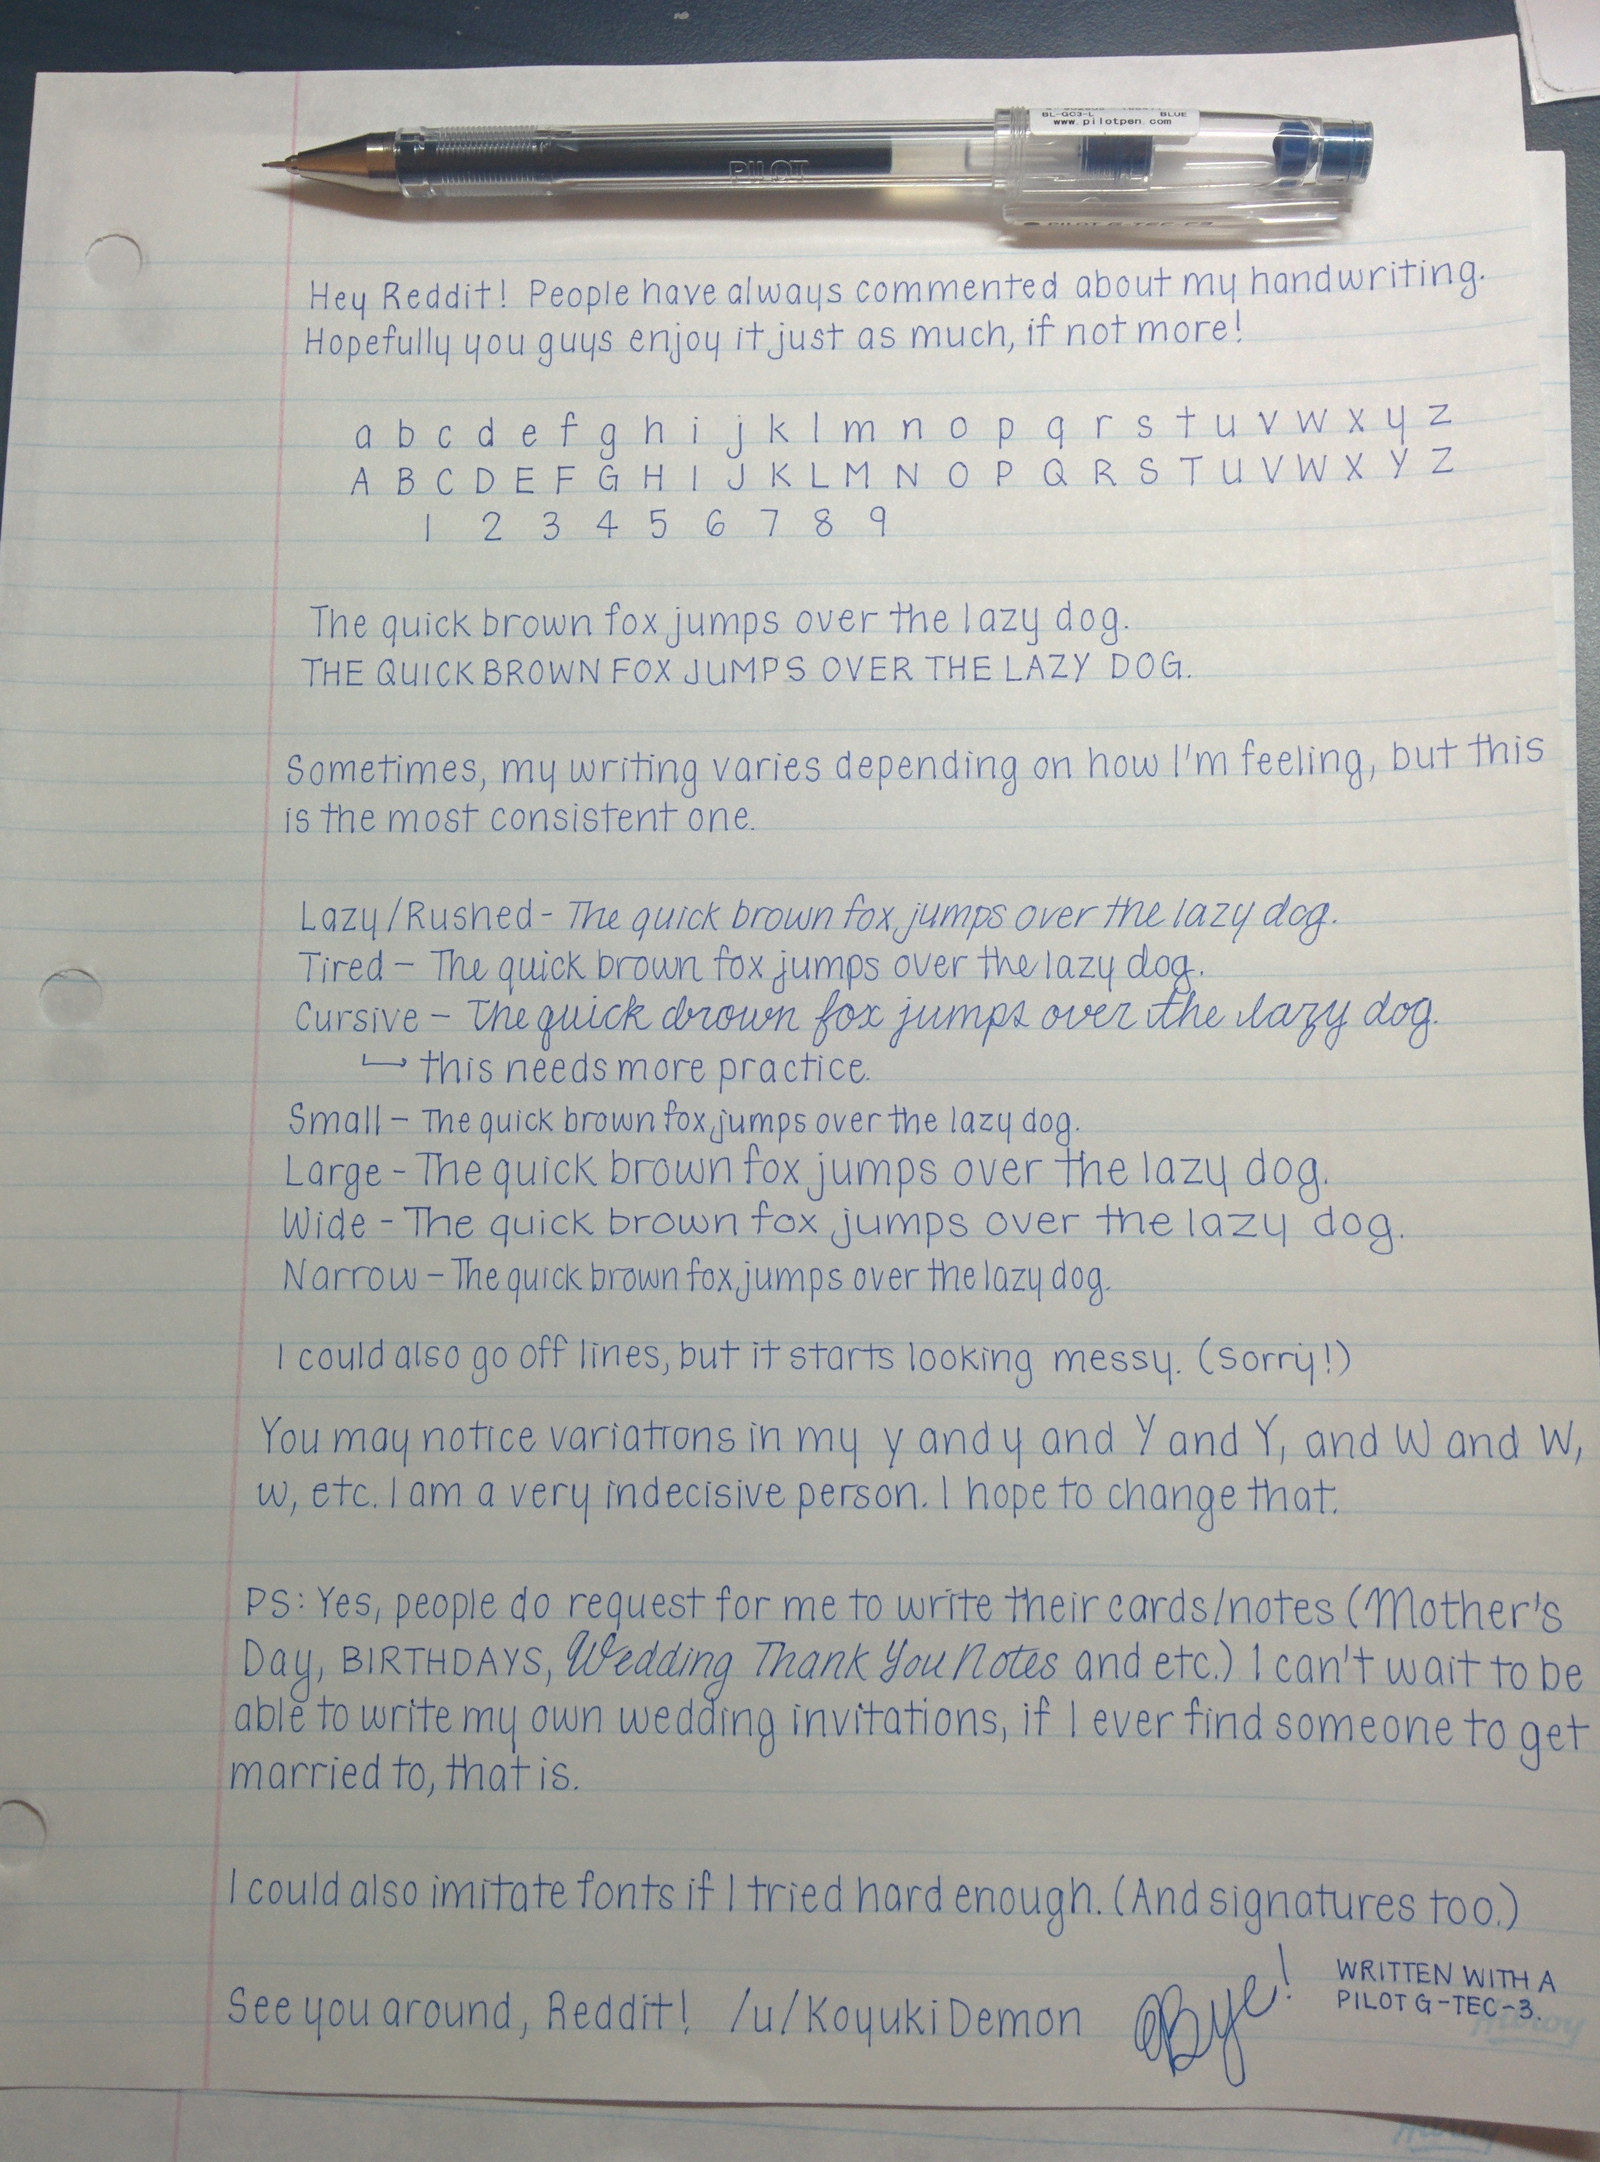 BL-GC3-L BLUE
www.pilotpen.com
PILOT
PILOT G-TEC-C3
Hey Reddit! People have always commented about my handwriting.
Hopefully you guys enjoy it just as much, if not more!
a b c d e f g h i j k l m n o p q r s t u v w x y z
A B C D E F G H I J K L M N O P Q R S T U V W X Y Z
1 2 3 4 5 6 7 8 9
The quick brown fox jumps over the lazy dog.
THE QUICK BROWN FOX JUMPS OVER THE LAZY DOG.
Sometimes, my writing varies depending on how I'm feeling, but this
is the most consistent one.
Lazy/Rushed - The quick brown fox jumps over the lazy dog.
Tired - The quick brown fox jumps over the lazy dog.
Cursive - The quick brown fox jumps over the lazy dog.
↳ this needs more practice.
Small - The quick brown fox jumps over the lazy dog.
Large - The quick brown fox jumps over the lazy dog.
Wide - The quick brown fox jumps over the lazy dog.
Narrow - The quick brown fox jumps over the lazy dog.
I could also go off lines, but it starts looking messy. (sorry!)
You may notice variations in my y and y and Y and Y, and W and W,
w, etc. I am a very indecisive person. I hope to change that.
PS: Yes, people do request for me to write their cards/notes (Mother's
Day, BIRTHDAYS, Wedding Thank You Notes and etc.) I can't wait to be
able to write my own wedding invitations, if I ever find someone to get
married to, that is.
I could also imitate fonts if I tried hard enough. (And signatures too.)
See you around, Reddit! /u/KoyukiDemon Bye! WRITTEN WITH A
PILOT G-TEC-3.